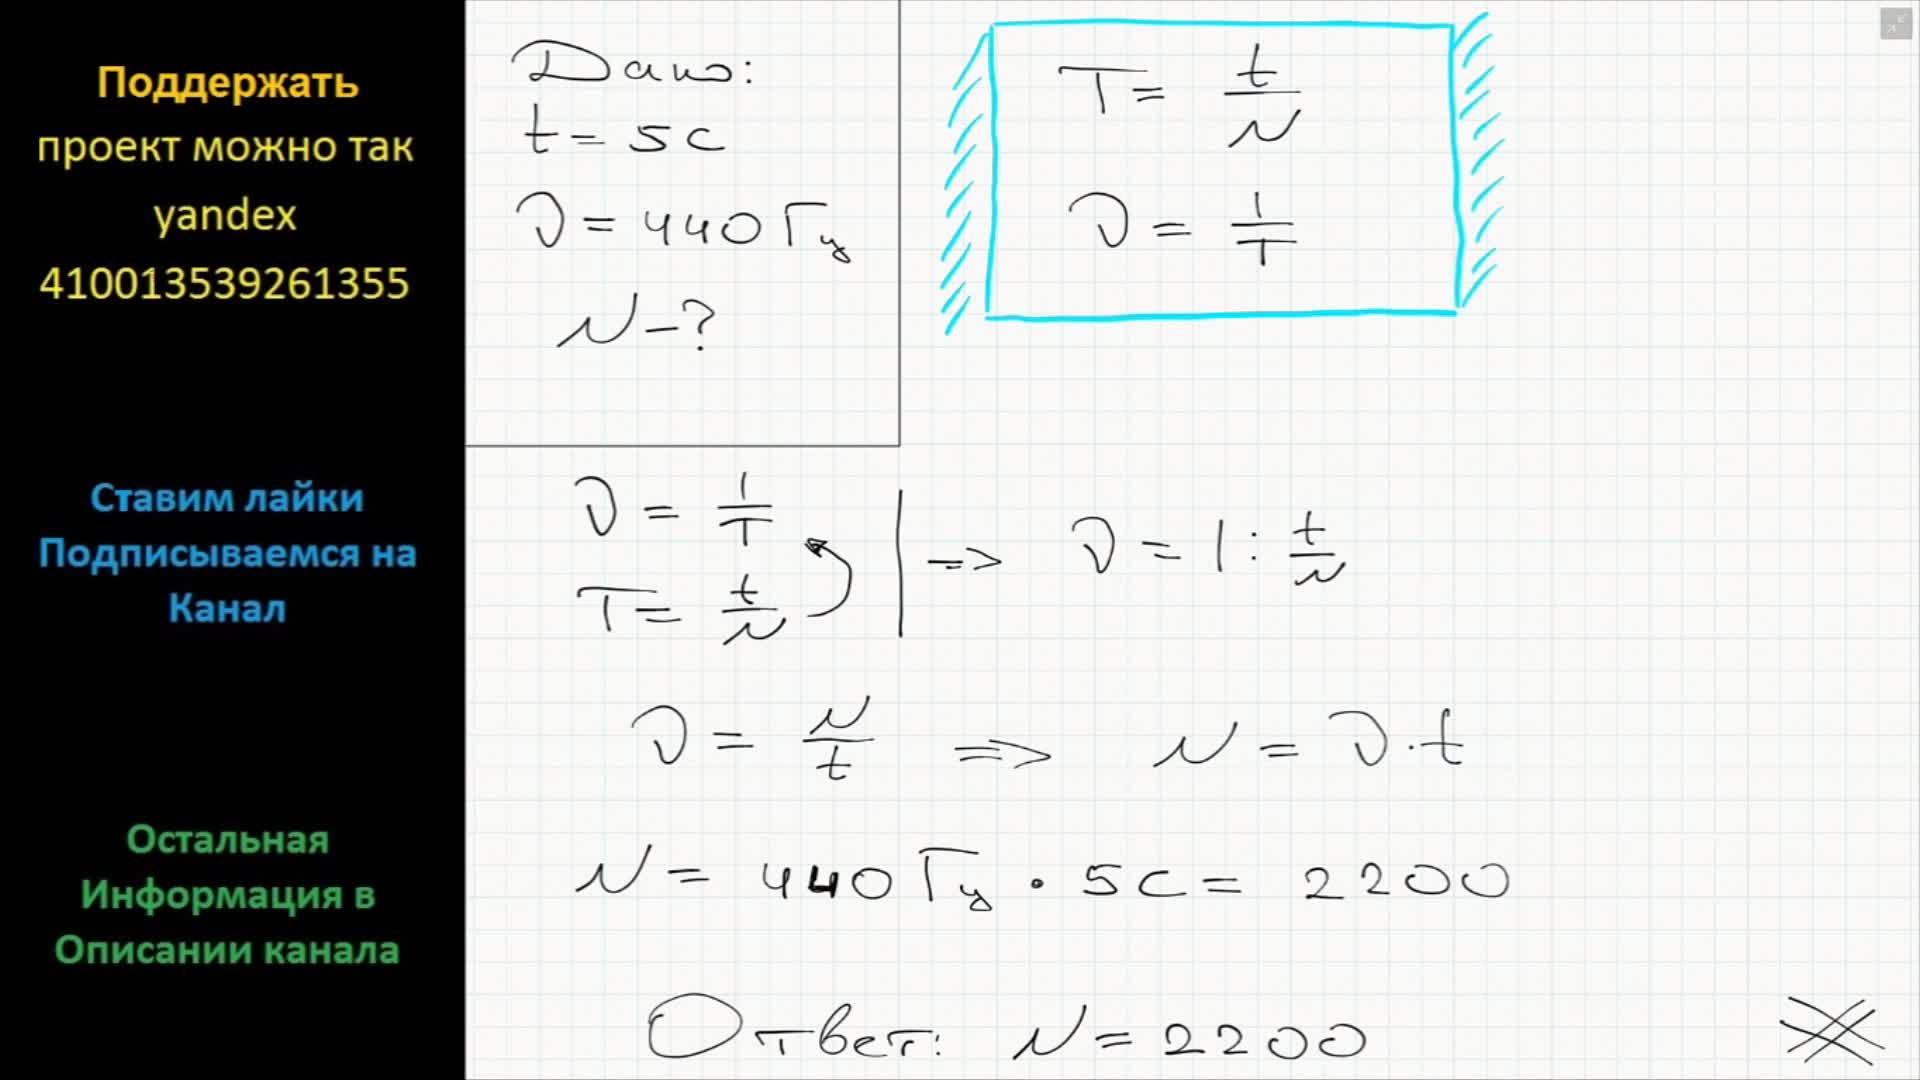 Поддержать
проект можно так
yandex
410013539261355
Ставим лайки
Подписываемся на
Канал
Остальная
Информация в
Описании канала
Дано:
t = 5 с
ν = 440 Гц
N - ?
T = t/N
ν = 1/T
ν = 1/T
T = t/N
=> ν = 1 : t/N
ν = N/t => N = ν · t
N = 440 Гц · 5 с = 2200
Ответ: N = 2200